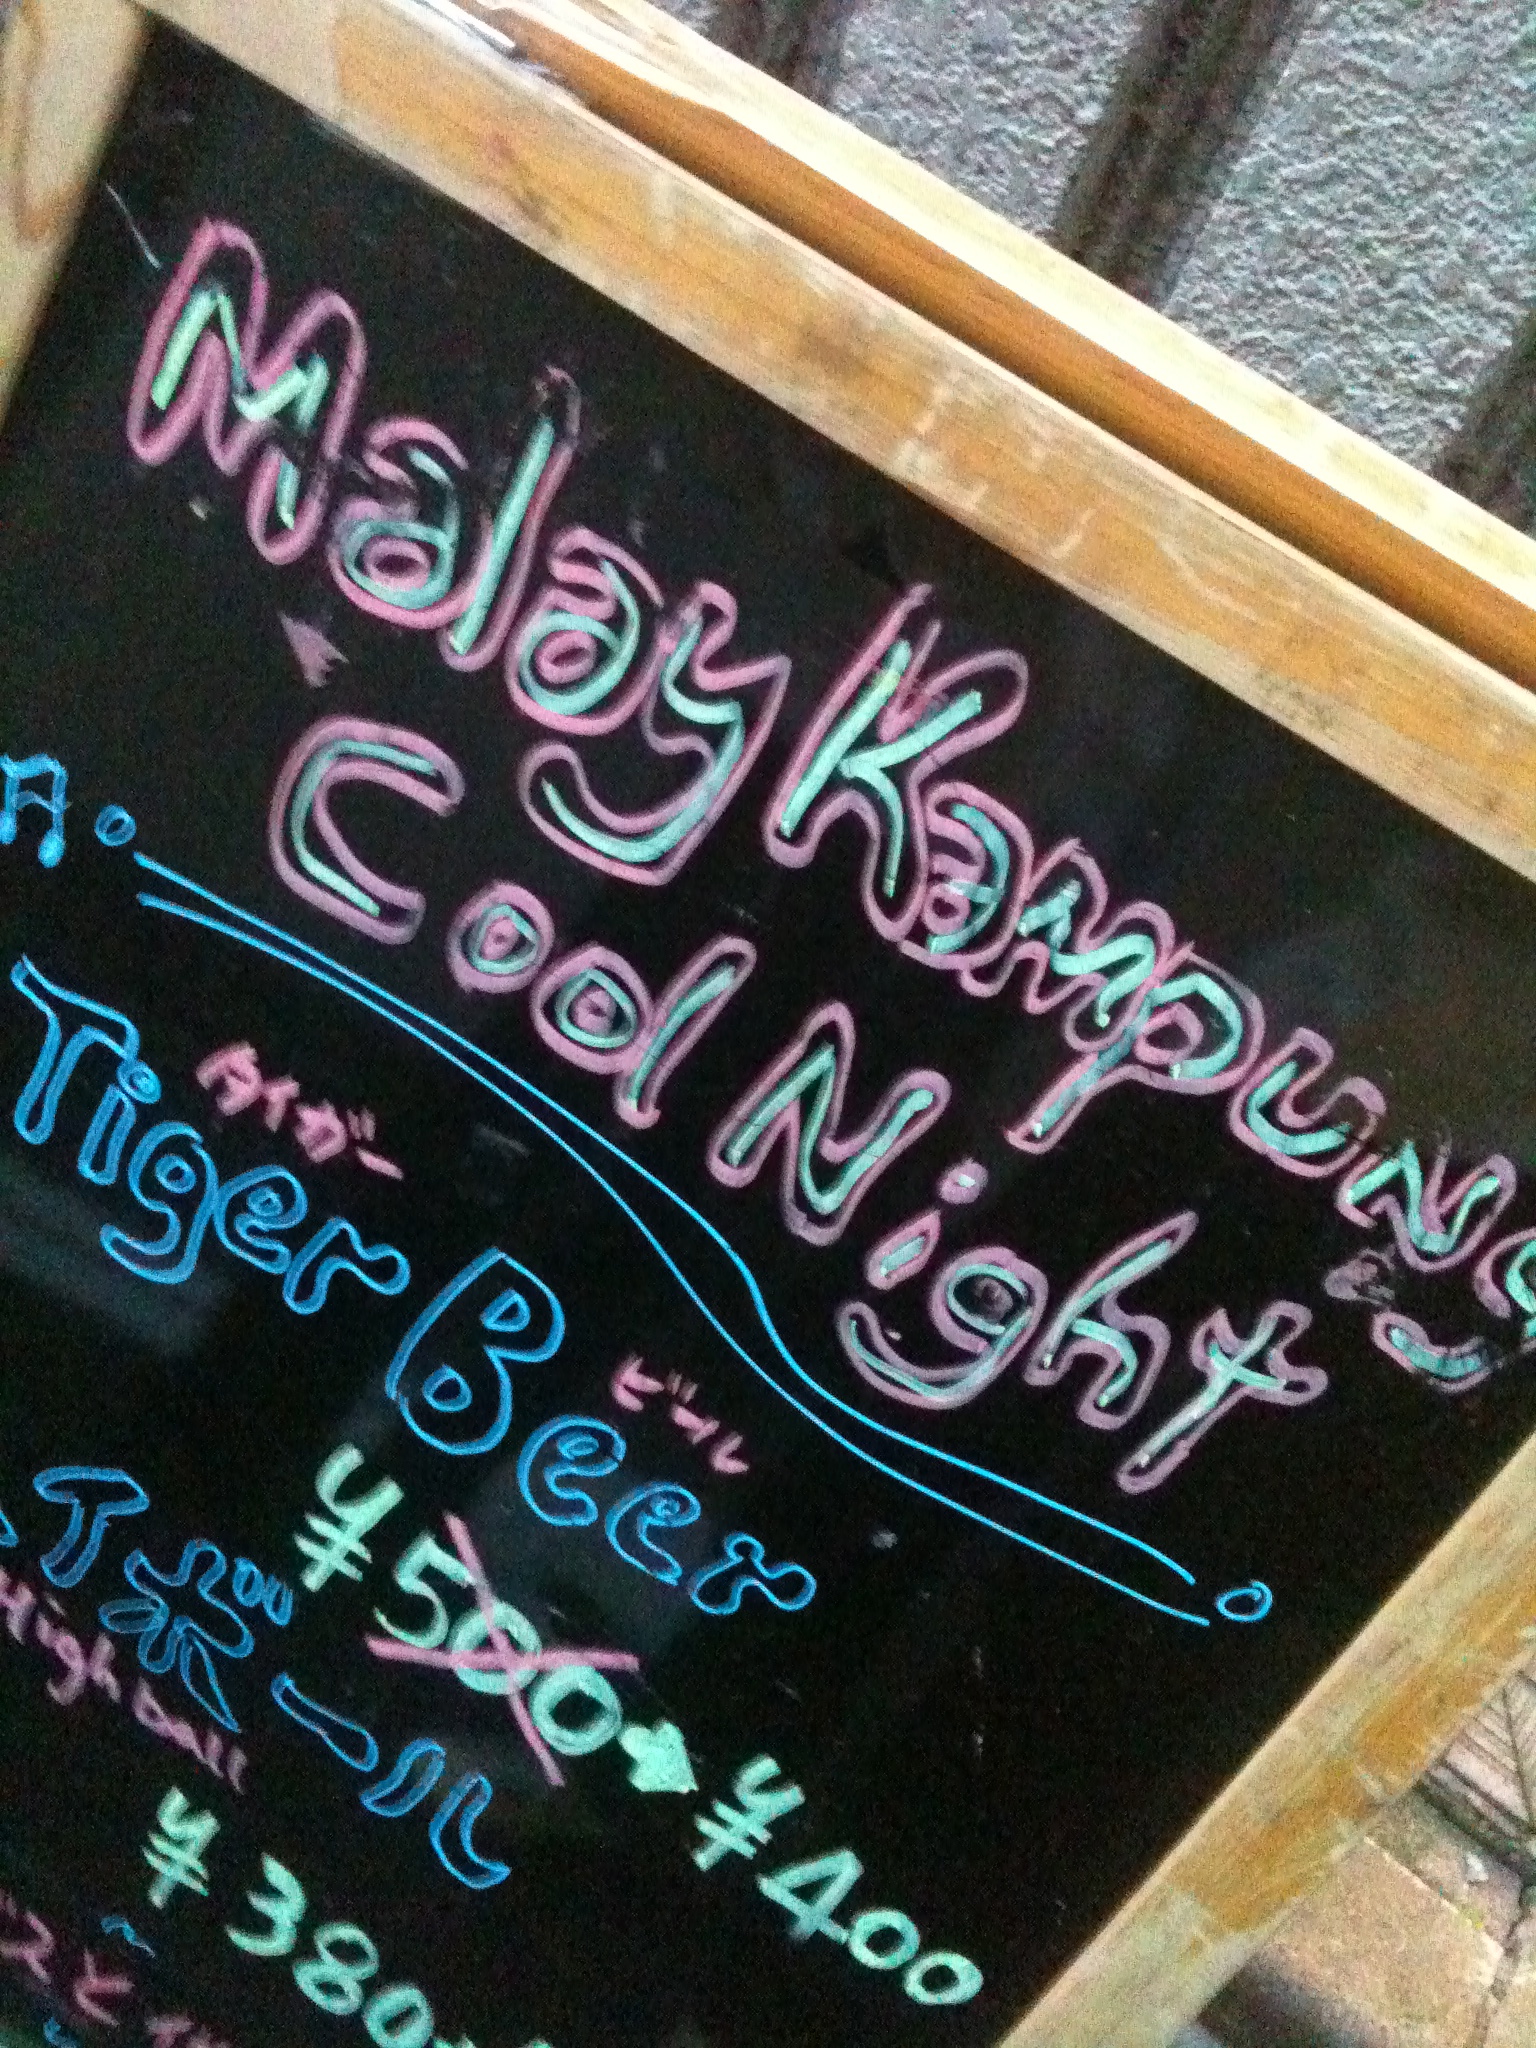 Malay Kampung
Cool Night
タイガー
Tiger Beer
ビール
¥500 → ¥400
イボール
Highball
¥380